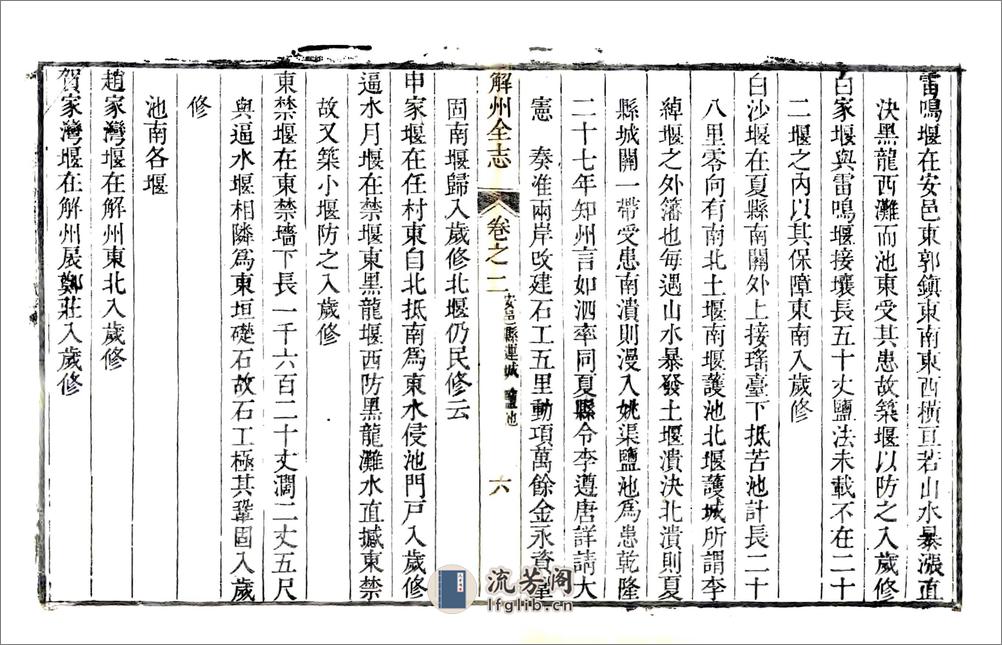 雷鳴堰在安邑東郭鎮東南東西橫亘若山水暴漲直
決黑龍西灘而池東受其患故築堰以防之入歲修
白家堰與雷鳴堰接壤長五十丈鹽法未載不在二十
二堰之內以其保障東南入歲修
白沙堰在夏縣南關外上接瑤臺下抵苦池計長二十
八里零向有南北土堰南堰護池北堰護城所謂李
綽堰之外藩也每遇山水暴發土堰潰決北潰則夏
縣城關一帶受患南潰則漫入姚渠鹽池為患乾隆
二十七年知州言如泗率同夏縣令李遵唐詳請大
憲 奏准兩岸改建石工五里動項萬餘金永資鞏
解州全志 卷之二 安邑縣運城 鹽池 六
固南堰歸入歲修北堰仍民修云
申家堰在任村東自北抵南為東水侵池門戶入歲修
逼水月堰在禁堰東黑龍堰西防黑龍灘水直撼東禁
故又築小堰防之入歲修
東禁堰在東禁墻下長一千六百二十丈濶二丈五尺
與逼水堰相隣為東垣礎石故石工極其鞏固入歲
修
池南各堰
趙家灣堰在解州東北入歲修
賀家灣堰在解州展鄭莊入歲修
流芳阁
lfglib.cn